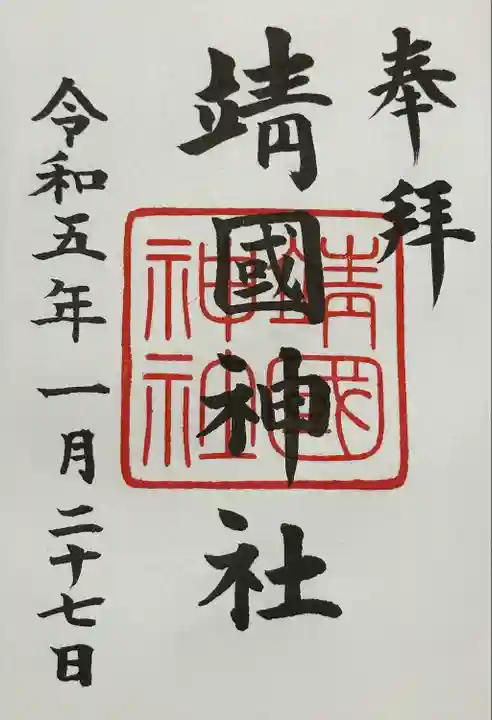 奉拜
靖國神社
靖國神社
令和五年一月二十七日